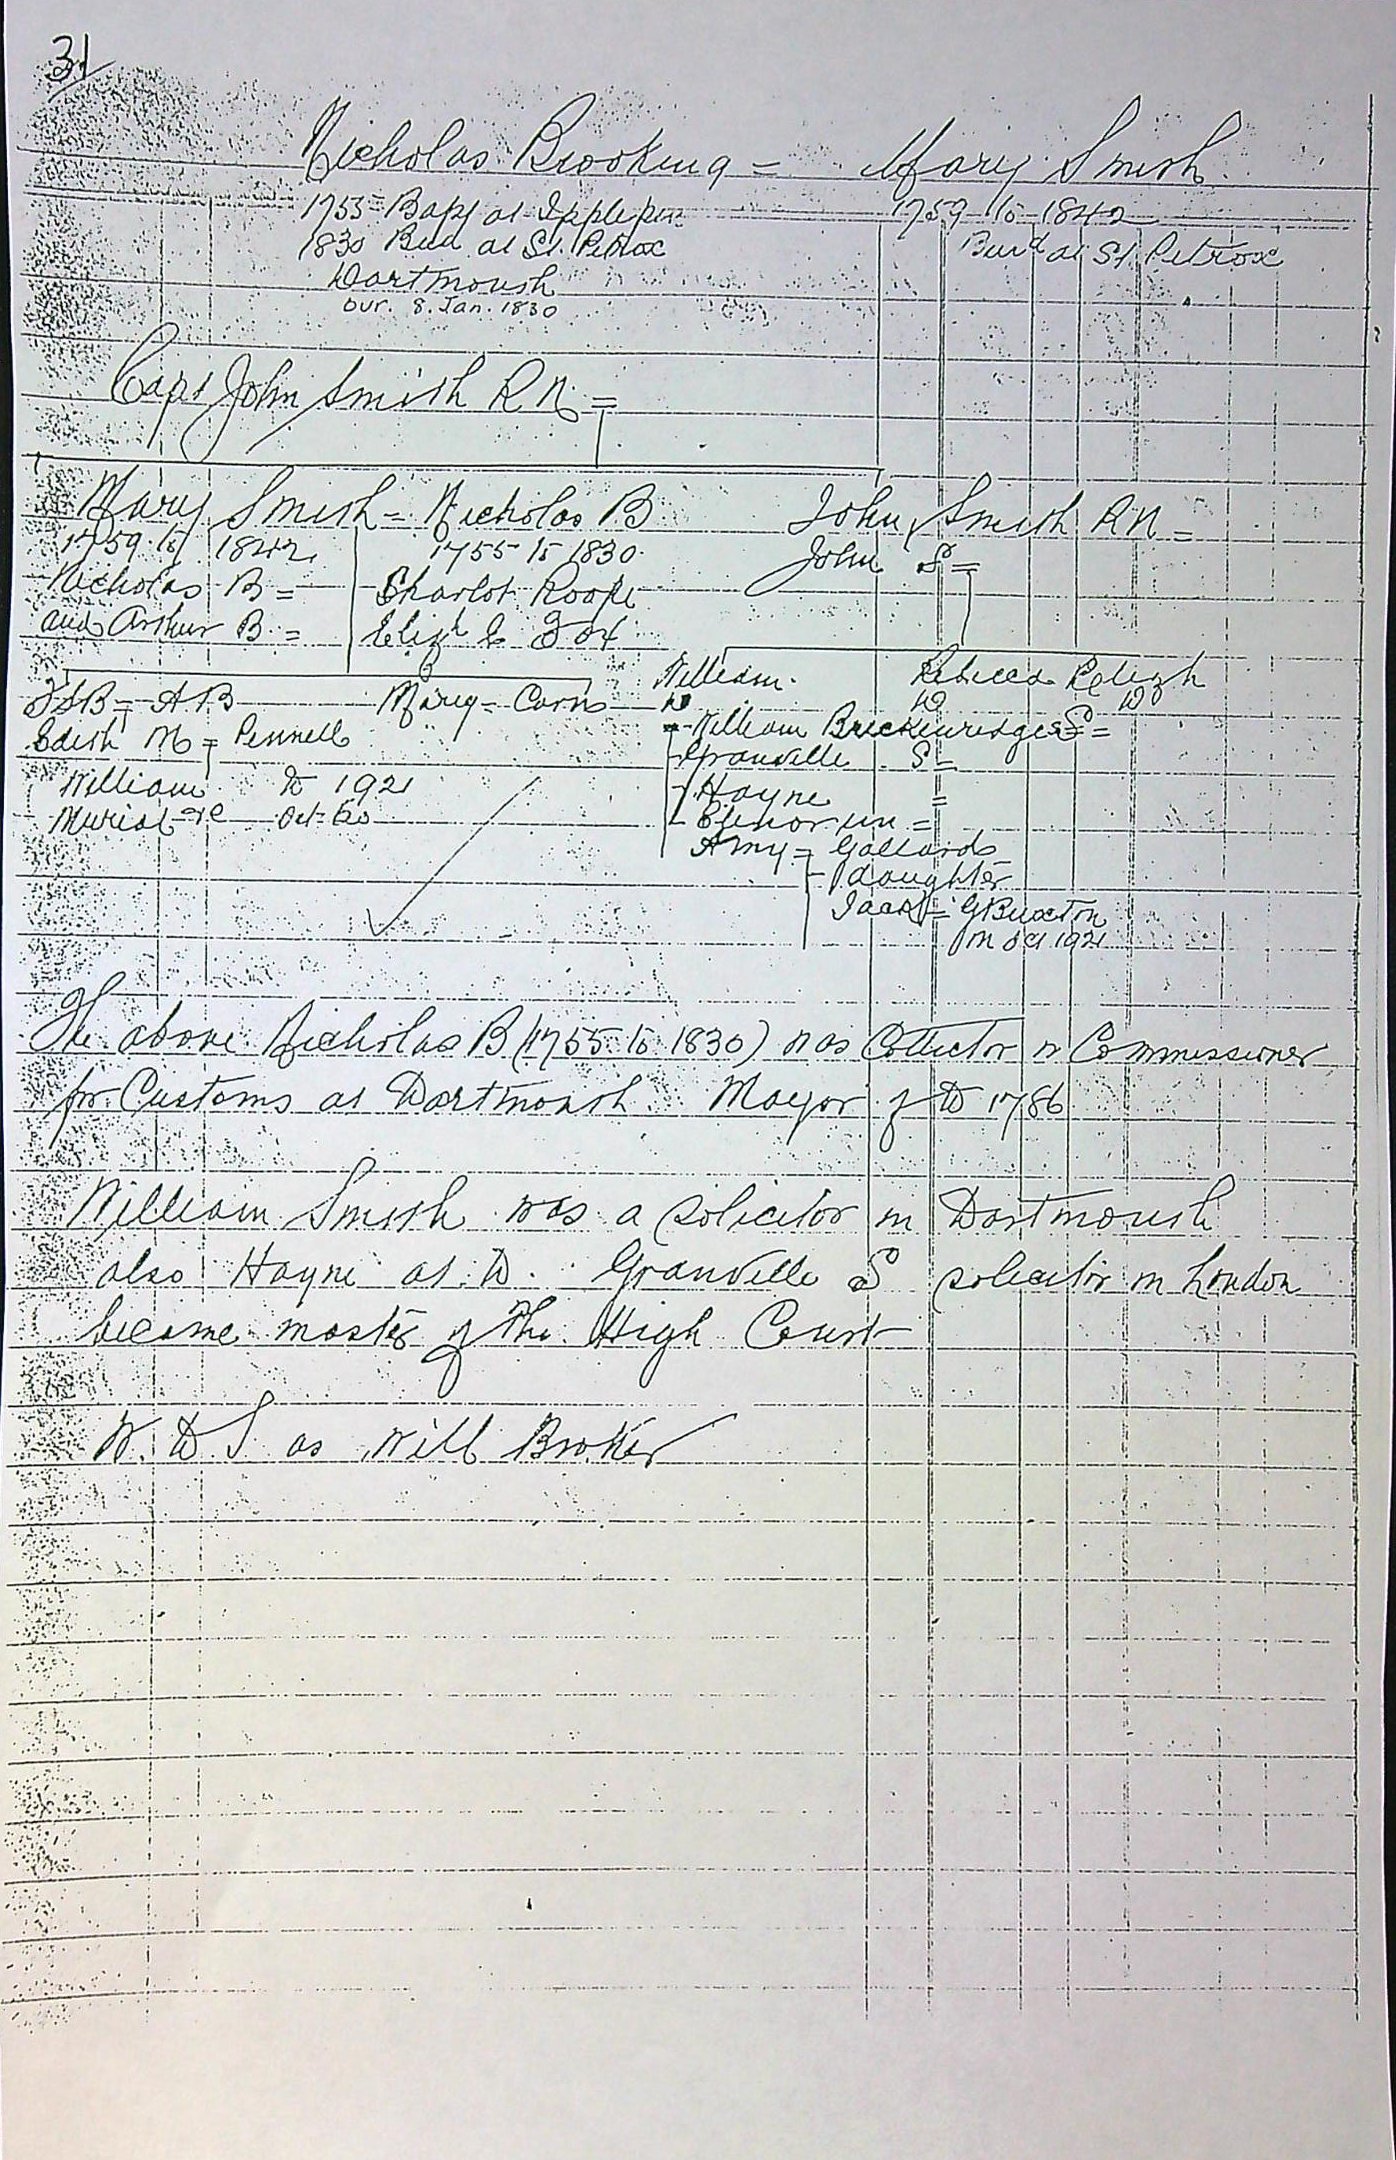 31
Nicholas Brooking = Mary Smith
1755 Bapt at Ipplepen 1759 to 1842
1830 Bud at St. Petrox Burd at St Petrox
Dartmouth
bur. 8. Jan. 1830
Capt John Smith RN =
Mary Smith = Nicholas B John Smith RN =
1759 to 1842 1755 to 1830 John S =
Nicholas B = Charlot Roope
and Arthur B = Elizh Fox
William Rebecca Religh
D D D
= AB Mary = Corns
William Breckenridge S =
Edith M = Pennell
Granville S =
William D 1921
Hayne =
Murial Oct
Elinor un =
Amy = Gallards
daughter
Jack = G Buxton
m Oct 1921
The above Nicholas B (1755 to 1830) was Collector or Commissioner
for Customs at Dartmouth Mayor of D 1786
William Smith was a solicitor in Dartmouth
also Hayne at D. Granville S solicitor in London
became master of the High Court
W. D S as Will Broker